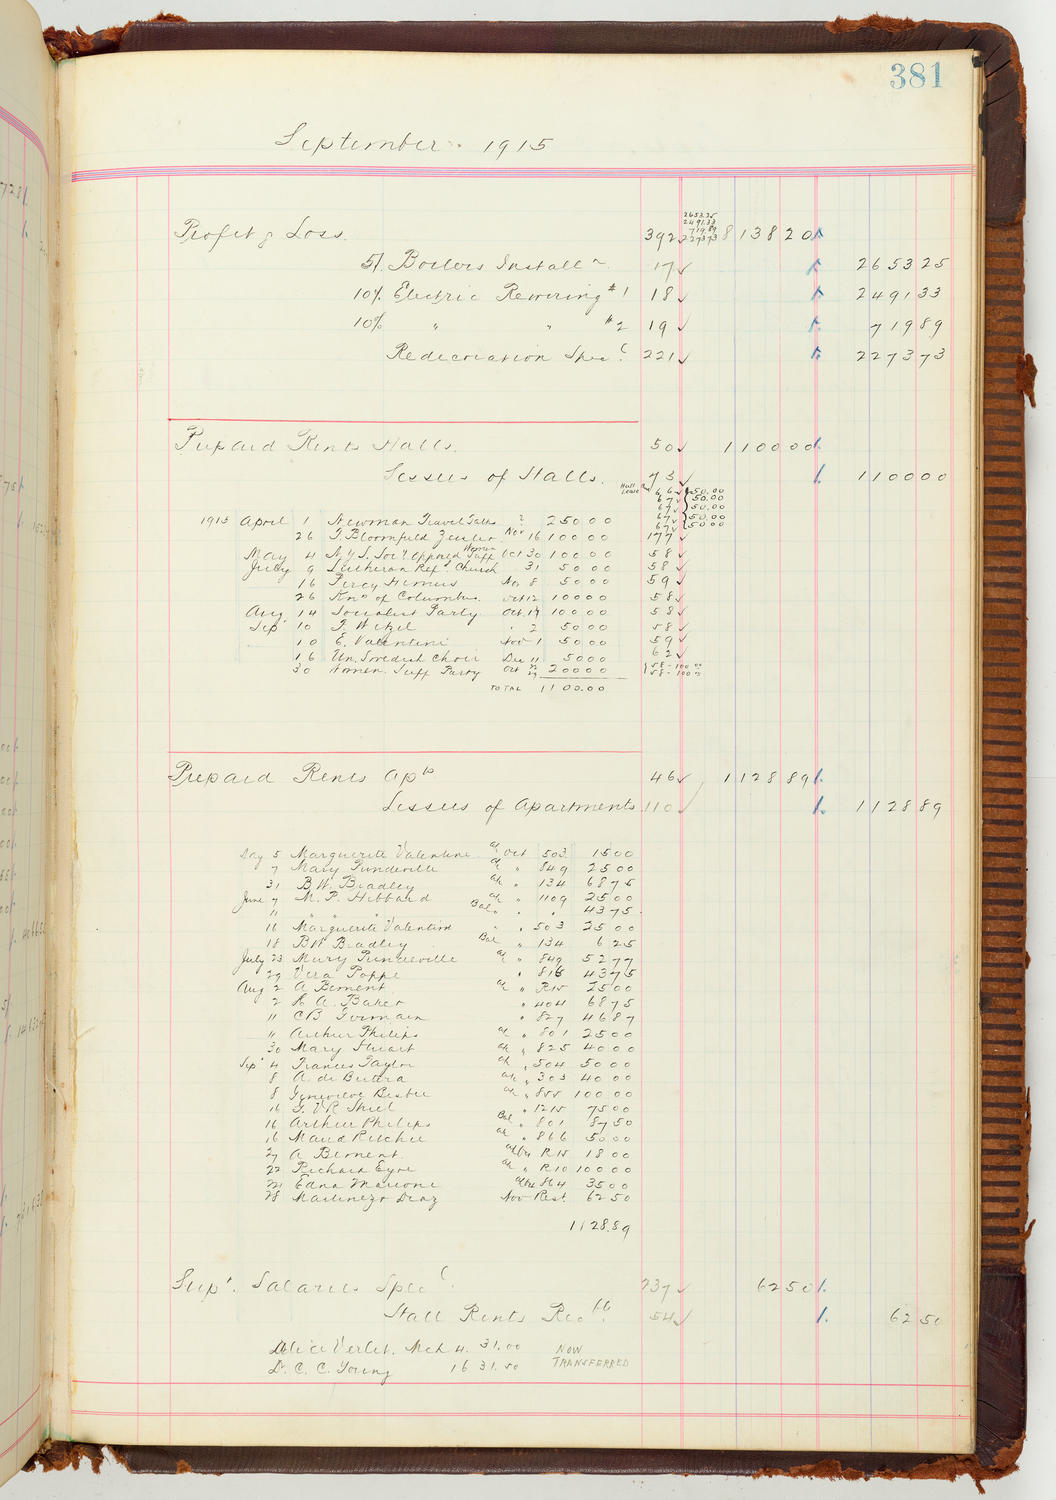 381
September 1915
2653.25
2491.33
719.89
2273.73
Profit & Loss. 392 8 1 3 8 2 0
5% Boilers Install 17 2 6 5 3 2 5
10% Electric Rewiring #1 18 2 4 9 1 3 3
10% " " #2 19 7 1 9 8 9
Redecoration Spec 221 2 2 7 3 7 3
Prepaid Rents Halls. 50 1 1 0 0 0 0
Lessees of Halls. 73 1 1 0 0 0 0
Hall Lease
66 50.00
67 50.00
67 50.00
67 50.00
67 50.00
1915 April 1 Newman Travel Talks ? 250 00 
26 T. Bloomfield Zeisler Nov 16 100 00 177
May 4 N.Y.S. Soc'y Opposed Women Suff Oct 30 100 00 58
July 9 Lutheran Ref'd Church 31 50 00 58
16 Percy Hemus Nov 8 50 00 59
26 Kns of Columbus. Oct 12 100 00 58
Aug 14 Socialist Party Oct. 19 100 00 58
Sep 10 F. Wetzel " 2 50 00 58
10 E. Valentini Nov 1 50 00 59
16 Un. Swedish Choir Dec 11 50 00 62
30 Women. Suff Party Oct 200 00 58 - 100 00
58 - 100 00
TOTAL 1100.00
Prepaid Rents Apts 46 1 1 2 8 8 9
Lessees of Apartments 110 1 1 2 8 8 9
May 5 Marguerite Valentine a/c Oct 503 15 00
7 Mary Turnderville a/c " 849 25 00
31 B.W. Bradley a/c " 134 68 75
June 7 M. P. Hibbard a/c " 1109 25 00
11 " " " Bal " " 43 75
16 Marguerite Valentini " " 503 25 00
18 BW Bradley Bal " 134 6 25
July 23 Mary Turnderville a/c " 849 52 77
29 Vera Poppe " 815 43 75
Aug 2 A Bement a/c " R15 25 00
2 H A. Baker " 404 68 75
11 CB Tormain " 827 46 87
11 Arthur Philips a/c " 801 25 00
30 Mary Stuart a/c " 825 40 00
Sep 4 Frances Taylor a/c " 504 50 00
8 A. de Butera a/c " 303 40 00
8 Genevieve Bisbee a/c " 855 100 00
16 G. V R Shiel " 1215 75 00
16 Arthur Philips Bal " 801 87 50
16 Maud Ritchie a/c " 866 50 00
27 A Bement. R15 18 00
22 Richard Eyre a/c " R10 100 00
22 Edna Marione 35 00
28 Martinezo Diaz Nov Rest. 62 50
1128.89
Supt. Salaries Spec 237 6 2 5 0
Hall Rents Rec 54 6 2 50
Alice Verlet. Mch 4. 31.00 NOW
Dr. C. C. Young 16 31.50 TRANSFERRED